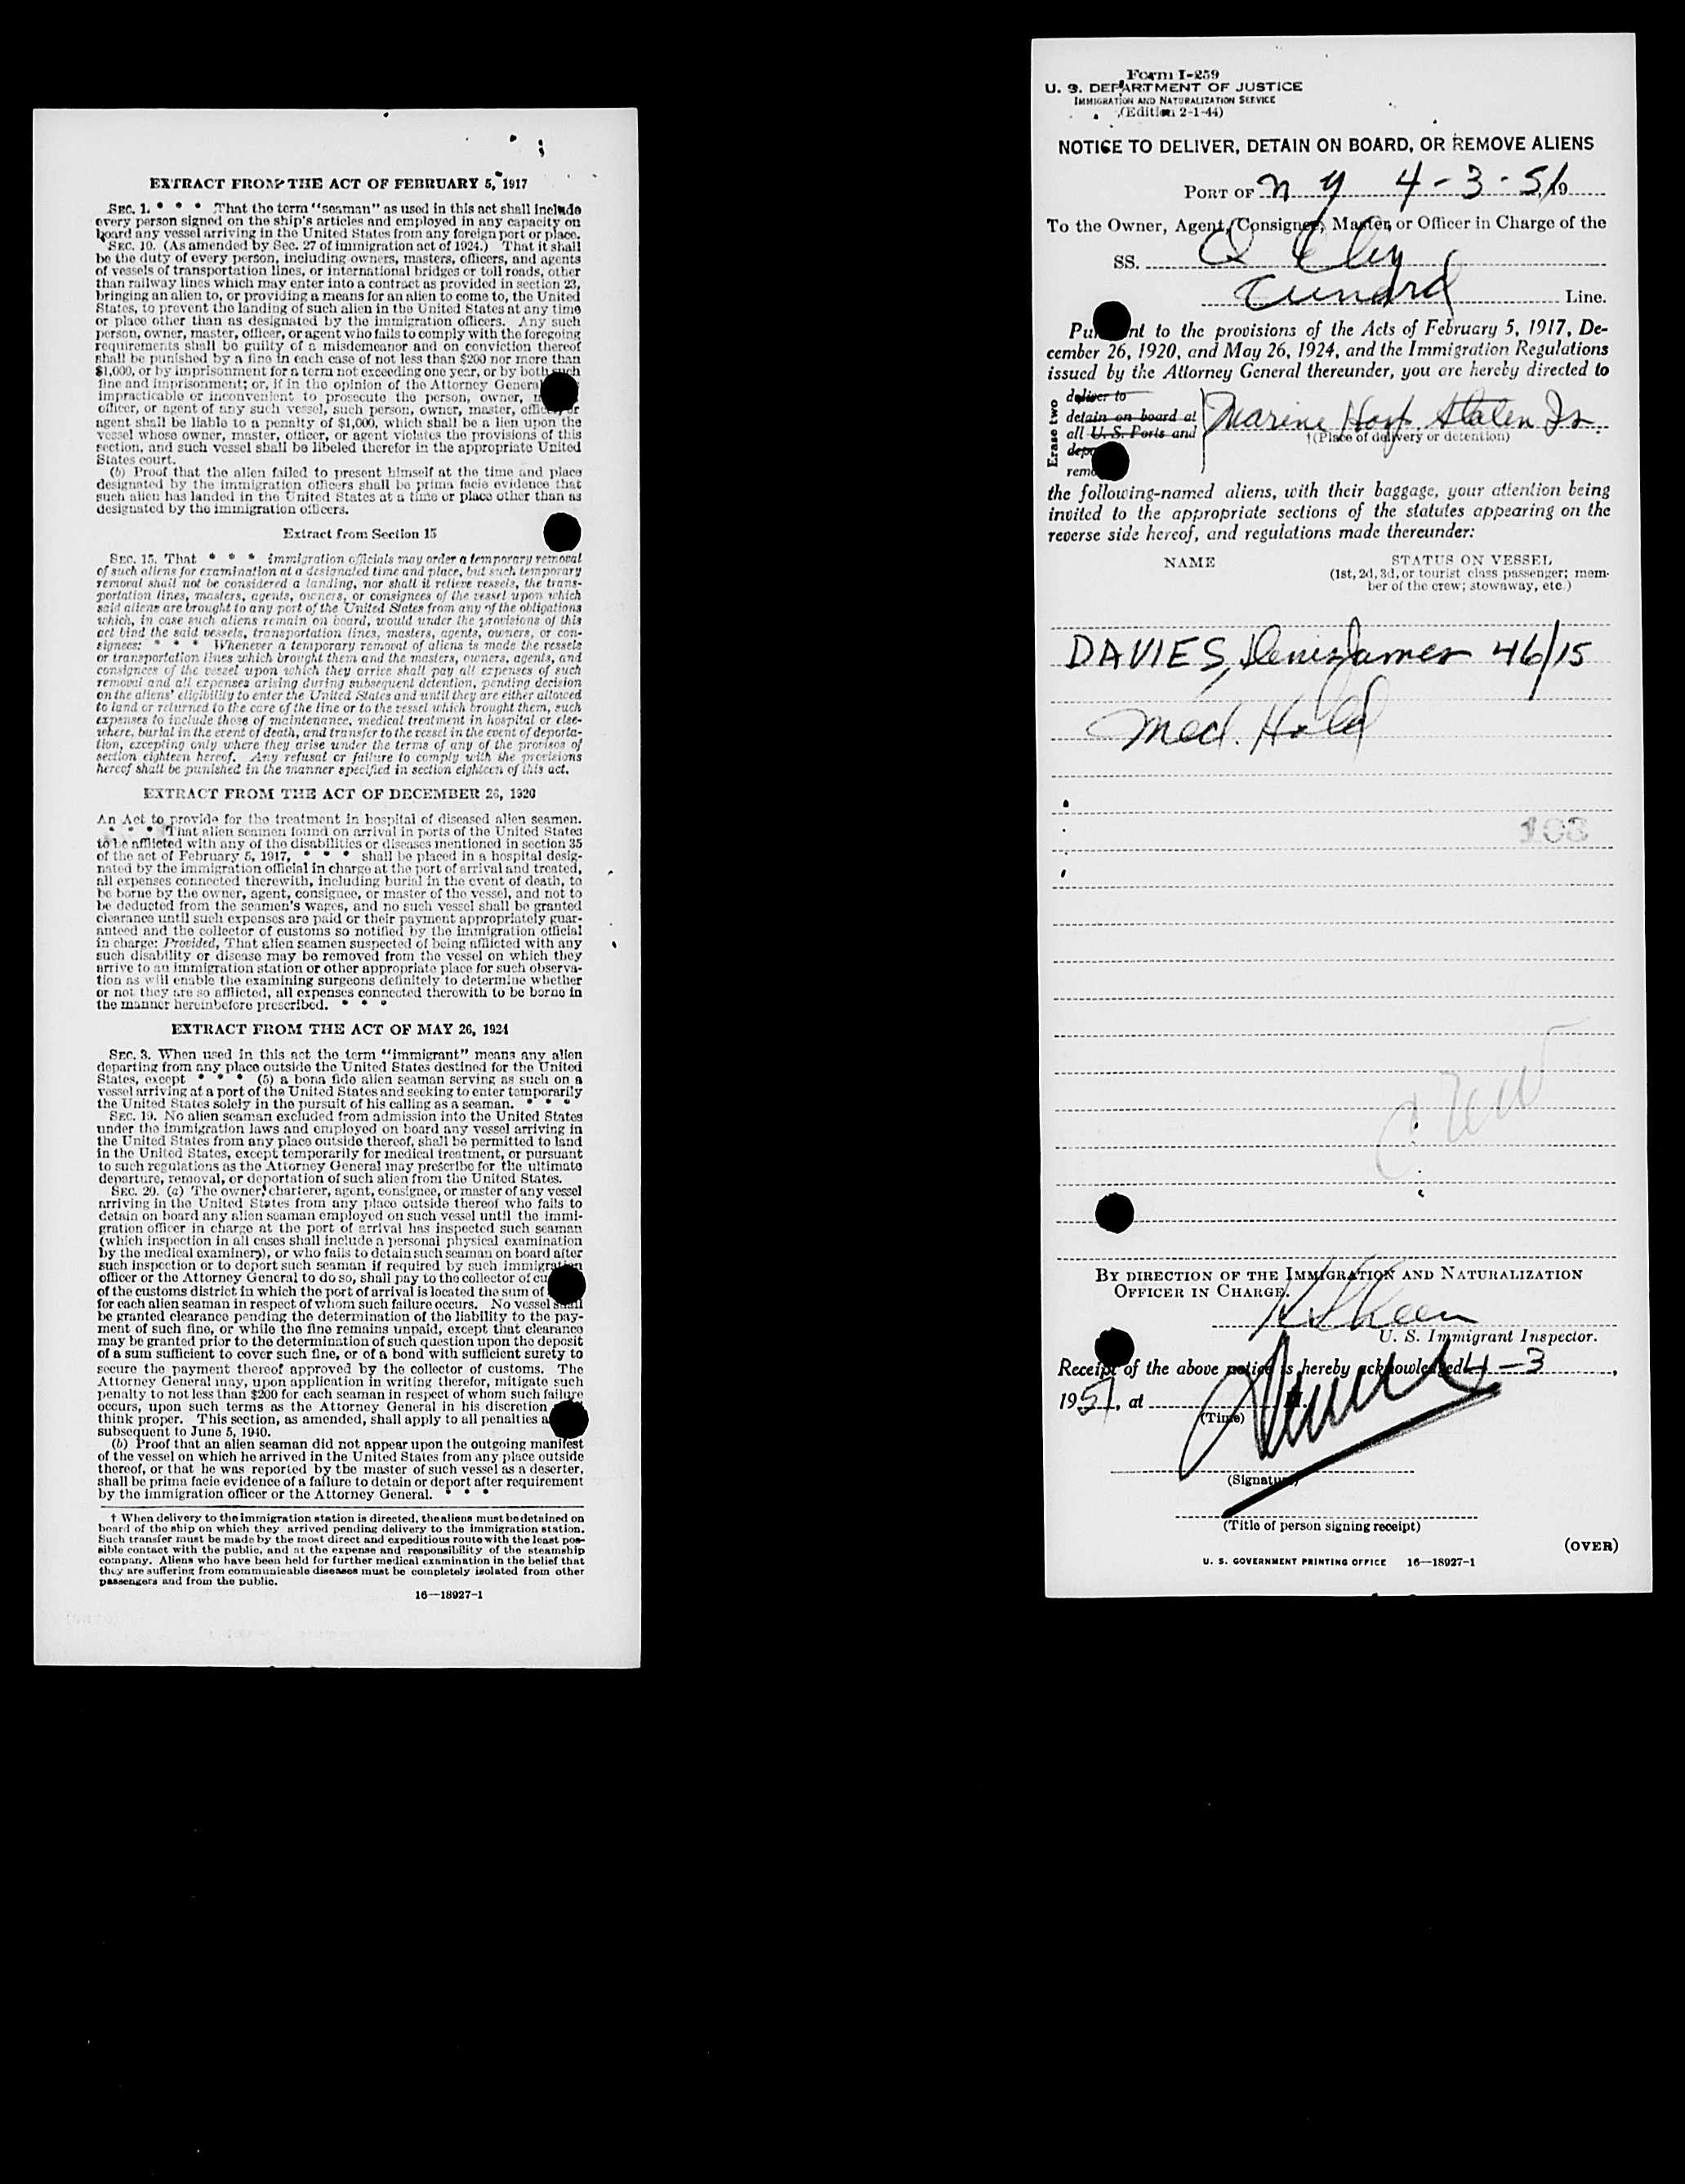 EXTRACT FROM THE ACT OF FEBRUARY 5, 1917
SEC. 1. * * * That the term "seaman" as used in this act shall include
every person signed on the ship's articles and employed in any capacity on
board any vessel arriving in the United States from any foreign port or place.
SEC. 10. (As amended by Sec. 27 of immigration act of 1924.) That it shall
be the duty of every person, including owners, masters, officers, and agents
of vessels of transportation lines, or international bridges or toll roads, other
than railway lines which may enter into a contract as provided in section 23,
bringing an alien to, or providing a means for an alien to come to, the United
States, to prevent the landing of such alien in the United States at any time
or place other than as designated by the immigration officers. Any such
person, owner, master, officer, or agent who fails to comply with the foregoing
requirements shall be guilty of a misdemeanor and on conviction thereof
shall be punished by a fine in each case of not less than $200 nor more than
$1,000, or by imprisonment for a term not exceeding one year, or by both such
fine and imprisonment; or, if in the opinion of the Attorney General
impracticable or inconvenient to prosecute the person, owner,
officer, or agent of any such vessel, such person, owner, master, officer, or
agent shall be liable to a penalty of $1,000, which shall be a lien upon the
vessel whose owner, master, officer, or agent violates the provisions of this
section, and such vessel shall be libeled therefor in the appropriate United
States court.
(b) Proof that the alien failed to present himself at the time and place
designated by the immigration officers shall be prima facie evidence that
such alien has landed in the United States at a time or place other than as
designated by the immigration officers.
Extract from Section 15
SEC. 15. That * * * immigration officials may order a temporary removal
of such aliens for examination at a designated time and place, but such temporary
removal shall not be considered a landing, nor shall it relieve vessels, the trans-
portation lines, masters, agents, owners, or consignees of the vessel upon which
said aliens are brought to any port of the United States from any of the obligations
which, in case such aliens remain on board, would under the provisions of this
act bind the said vessels, transportation lines, masters, agents, owners, or con-
signees: * * * Whenever a temporary removal of aliens is made the vessels
or transportation lines which brought them and the masters, owners, agents, and
consignees of the vessel upon which they arrive shall pay all expenses of such
removal and all expenses arising during subsequent detention, pending decision
on the aliens' eligibility to enter the United States and until they are either allowed
to land or returned to the care of the line or to the vessel which brought them, such
expenses to include those of maintenance, medical treatment in hospital or else-
where, burial in the event of death, and transfer to the vessel in the event of deporta-
tion, excepting only where they arise under the terms of any of the provisos of
section eighteen hereof. Any refusal or failure to comply with the provisions
hereof shall be punished in the manner specified in section eighteen of this act.
EXTRACT FROM THE ACT OF DECEMBER 26, 1920
An Act to provide for the treatment in hospital of diseased alien seamen.
* * * That alien seamen found on arrival in ports of the United States
to be afflicted with any of the disabilities or diseases mentioned in section 35
of the act of February 5, 1917, * * * shall be placed in a hospital desig-
nated by the immigration official in charge at the port of arrival and treated,
all expenses connected therewith, including burial in the event of death, to
be borne by the owner, agent, consignee, or master of the vessel, and not to
be deducted from the seamen's wages, and no such vessel shall be granted
clearance until such expenses are paid or their payment appropriately guar-
anteed and the collector of customs so notified by the immigration official
in charge: Provided, That alien seamen suspected of being afflicted with any
such disability or disease may be removed from the vessel on which they
arrive to an immigration station or other appropriate place for such observa-
tion as will enable the examining surgeons definitely to determine whether
or not they are so afflicted, all expenses connected therewith to be borne in
the manner hereinbefore prescribed. * * *
EXTRACT FROM THE ACT OF MAY 26, 1924
SEC. 3. When used in this act the term "immigrant" means any alien
departing from any place outside the United States destined for the United
States, except * * * (5) a bona fide alien seaman serving as such on a
vessel arriving at a port of the United States and seeking to enter temporarily
the United States solely in the pursuit of his calling as a seaman. * * *
SEC. 19. No alien seaman excluded from admission into the United States
under the immigration laws and employed on board any vessel arriving in
the United States from any place outside thereof, shall be permitted to land
in the United States, except temporarily for medical treatment, or pursuant
to such regulations as the Attorney General may prescribe for the ultimate
departure, removal, or deportation of such alien from the United States.
SEC. 20. (a) The owner, charterer, agent, consignee, or master of any vessel
arriving in the United States from any place outside thereof who fails to
detain on board any alien seaman employed on such vessel until the immi-
gration officer in charge at the port of arrival has inspected such seaman
(which inspection in all cases shall include a personal physical examination
by the medical examiners), or who fails to detain such seaman on board after
such inspection or to deport such seaman if required by such immigration
officer or the Attorney General to do so, shall pay to the collector of cu
of the customs district in which the port of arrival is located the sum of
for each alien seaman in respect of whom such failure occurs. No vessel shall
be granted clearance pending the determination of the liability to the pay-
ment of such fine, or while the fine remains unpaid, except that clearance
may be granted prior to the determination of such question upon the deposit
of a sum sufficient to cover such fine, or of a bond with sufficient surety to
secure the payment thereof approved by the collector of customs. The
Attorney General may, upon application in writing therefor, mitigate such
penalty to not less than $200 for each seaman in respect of whom such failure
occurs, upon such terms as the Attorney General in his discretion
think proper. This section, as amended, shall apply to all penalties a
subsequent to June 5, 1940.
(b) Proof that an alien seaman did not appear upon the outgoing manifest
of the vessel on which he arrived in the United States from any place outside
thereof, or that he was reported by the master of such vessel as a deserter,
shall be prima facie evidence of a failure to detain or deport after requirement
by the immigration officer or the Attorney General. * * *
† When delivery to the immigration station is directed, the aliens must be detained on
board of the ship on which they arrived pending delivery to the immigration station.
Such transfer must be made by the most direct and expeditious route with the least pos-
sible contact with the public, and at the expense and responsibility of the steamship
company. Aliens who have been held for further medical examination in the belief that
they are suffering from communicable diseases must be completely isolated from other
passengers and from the public.
16—18927-1
Form I-259
U. S. DEPARTMENT OF JUSTICE
IMMIGRATION AND NATURALIZATION SERVICE
(Edition 2-1-44)
NOTICE TO DELIVER, DETAIN ON BOARD, OR REMOVE ALIENS
PORT OF N Y 4-3-51 19
To the Owner, Agent, Consignee, Master, or Officer in Charge of the
SS. Q Eliz
Cunard Line.
Pu nt to the provisions of the Acts of February 5, 1917, De-
cember 26, 1920, and May 26, 1924, and the Immigration Regulations
issued by the Attorney General thereunder, you are hereby directed to
Erase two
deliver to
detain on board at
all U. S. Ports and
depo
remo
Marine Hosp. Staten Is.
†(Place of delivery or detention)
the following-named aliens, with their baggage, your attention being
invited to the appropriate sections of the statutes appearing on the
reverse side hereof, and regulations made thereunder:
NAME STATUS ON VESSEL
(1st, 2d, 3d, or tourist class passenger; mem-
ber of the crew; stowaway, etc.)
DAVIES, Denis James 46/15
Med. Hold
108
Crew
BY DIRECTION OF THE IMMIGRATION AND NATURALIZATION
OFFICER IN CHARGE.
U. S. Immigrant Inspector.
Receipt of the above notice is hereby acknowledged 4-3,
1951, at
(Time)
(Signature)
(Title of person signing receipt)
(OVER)
U. S. GOVERNMENT PRINTING OFFICE 16—18927-1